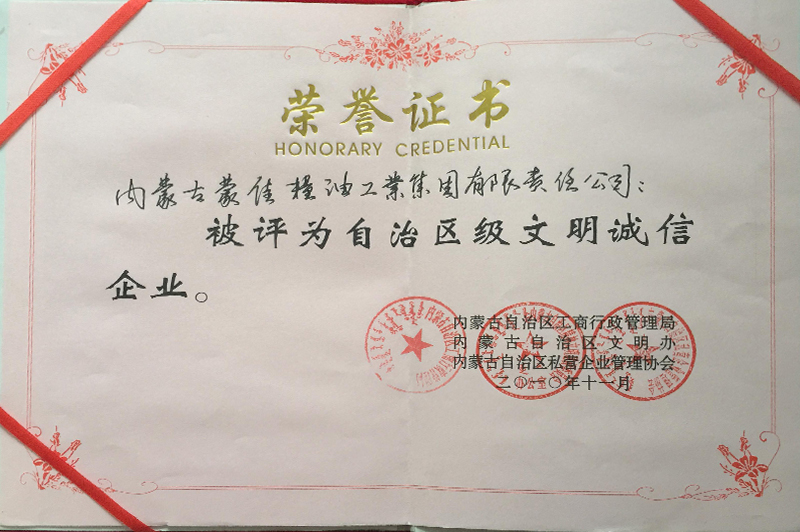 荣誉证书
HONORARY CREDENTIAL
内蒙古蒙佳粮油工业集团有限责任公司:
被评为自治区级文明诚信
企业。
内蒙古自治区工商行政管理局
内蒙古自治区文明办
内蒙古自治区私营企业管理协会
二〇一〇年十一月